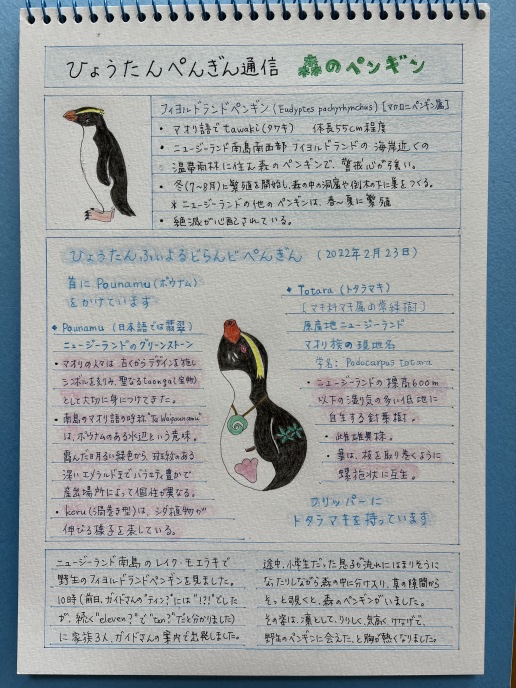 ひょうたんぺんぎん通信 森のペンギン
フィヨルドランドペンギン (Eudyptes pachyrhynchus) [マカロニペンギン属]
• マオリ語で tawaki (タワキ) 体長55cm程度
• ニュージーランド南島南西部 フィヨルドランドの海岸近くの
温帯雨林に住む森のペンギンで、警戒心が強い。
• 冬(7~8月)に繁殖を開始し、森の中の洞窟や倒木の下に巣をつくる。
* ニュージーランドの他のペンギンは、春~夏に繁殖
• 絶滅が心配されている。
ひょうたんふぃよるどらんどぺんぎん (2022年2月23日)
首に Pounamu (ポウナム)
をかけています
◆ Pounamu (日本語では翡翠)
ニュージーランドのグリーンストーン
• マオリの人々は、古くからデザインを施し
シンボルを刻み、聖なるtaonga(宝物)
として大切に身につけてきた。
• 南島のマオリ語の呼称"Te Waipounamu"
は、ポウナムのある水辺という意味。
• 霞んだ明るい緑色から、斑紋のある
深いエメラルドまでバラエティ豊かで
産出場所によって個性が異なる。
• Koru (渦巻き型)は、シダ植物が
伸びる様子を表している。
◆ Totara (トタラマキ)
[マキ科マキ属の常緑樹]
原産地 ニュージーランド
マオリ族の現地名
学名: Podocarpus totara
• ニュージーランドの標高600m
以下の湿り気の多い低地に
自生する針葉樹。
• 雌雄異株。
• 葉は、枝を取り巻くように
螺旋状に互生。
フリッパーに
トタラマキを持っています
ニュージーランド南島のレイク・モエラキで
野生のフィヨルドランドペンギンを見ました。
10時(前日、ガイドさんの"ティン?"には"!?!"でした
が、続く"eleven?"で"ten?"だと分かりました)
に家族3人、ガイドさんの案内で出発しました。
途中、小学生だった息子が流れにはまりそうに
なったりしながら森の中に分け入り、草の隙間から
そっと覗くと、森のペンギンがいました。
その姿は、凛として、りりしく、気高く、けなげで、
野生のペンギンに会えた、と胸が熱くなりました。